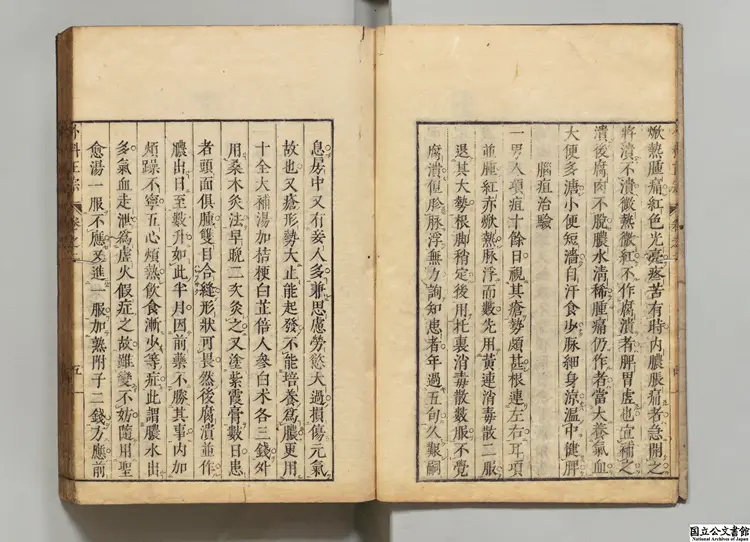 焮熱腫痛紅色光亮疼苦有時內膿脹痛者急開之
將潰不潰微熱微紅不作腐潰者脾胃虛也宜補之
潰後腐肉不脫膿水清稀腫痛仍作者當大養氣血
大便多溏小便短濇自汗食少脉細身涼溫中健脾
腦疽治驗
一男人項疽十餘日視其瘡勢頗甚根連左右耳項
並腫紅赤焮熱脉浮而數先用黃連消毒散二服
退其大勢根脚稍定後用托裏消毒散數服不覺
腐潰但脉浮無力詢知患者年過五旬久艱嗣
外科正宗 卷之二 五
息房中又有妾人多兼思慮勞慾太過損傷元氣
故也又瘡形勢大止能起發不能培養爲膿更用
十全大補湯加桔梗白芷倍人參白朮各三錢外
用桑木灸法早晚二次灸之又塗紫霞膏數日患
者頭面俱腫雙目合縫形狀可畏然後腐潰並作
膿出日至數升如此半月因前藥不勝其事內加
煩躁不寧五心煩熱飲食漸少等症此謂膿水出
多氣血走泄爲虛火假症之故雖變不妨隨用聖
愈湯一服不應又進一服加熟附子二錢方應前
国立公文書館
National Archives of Japan